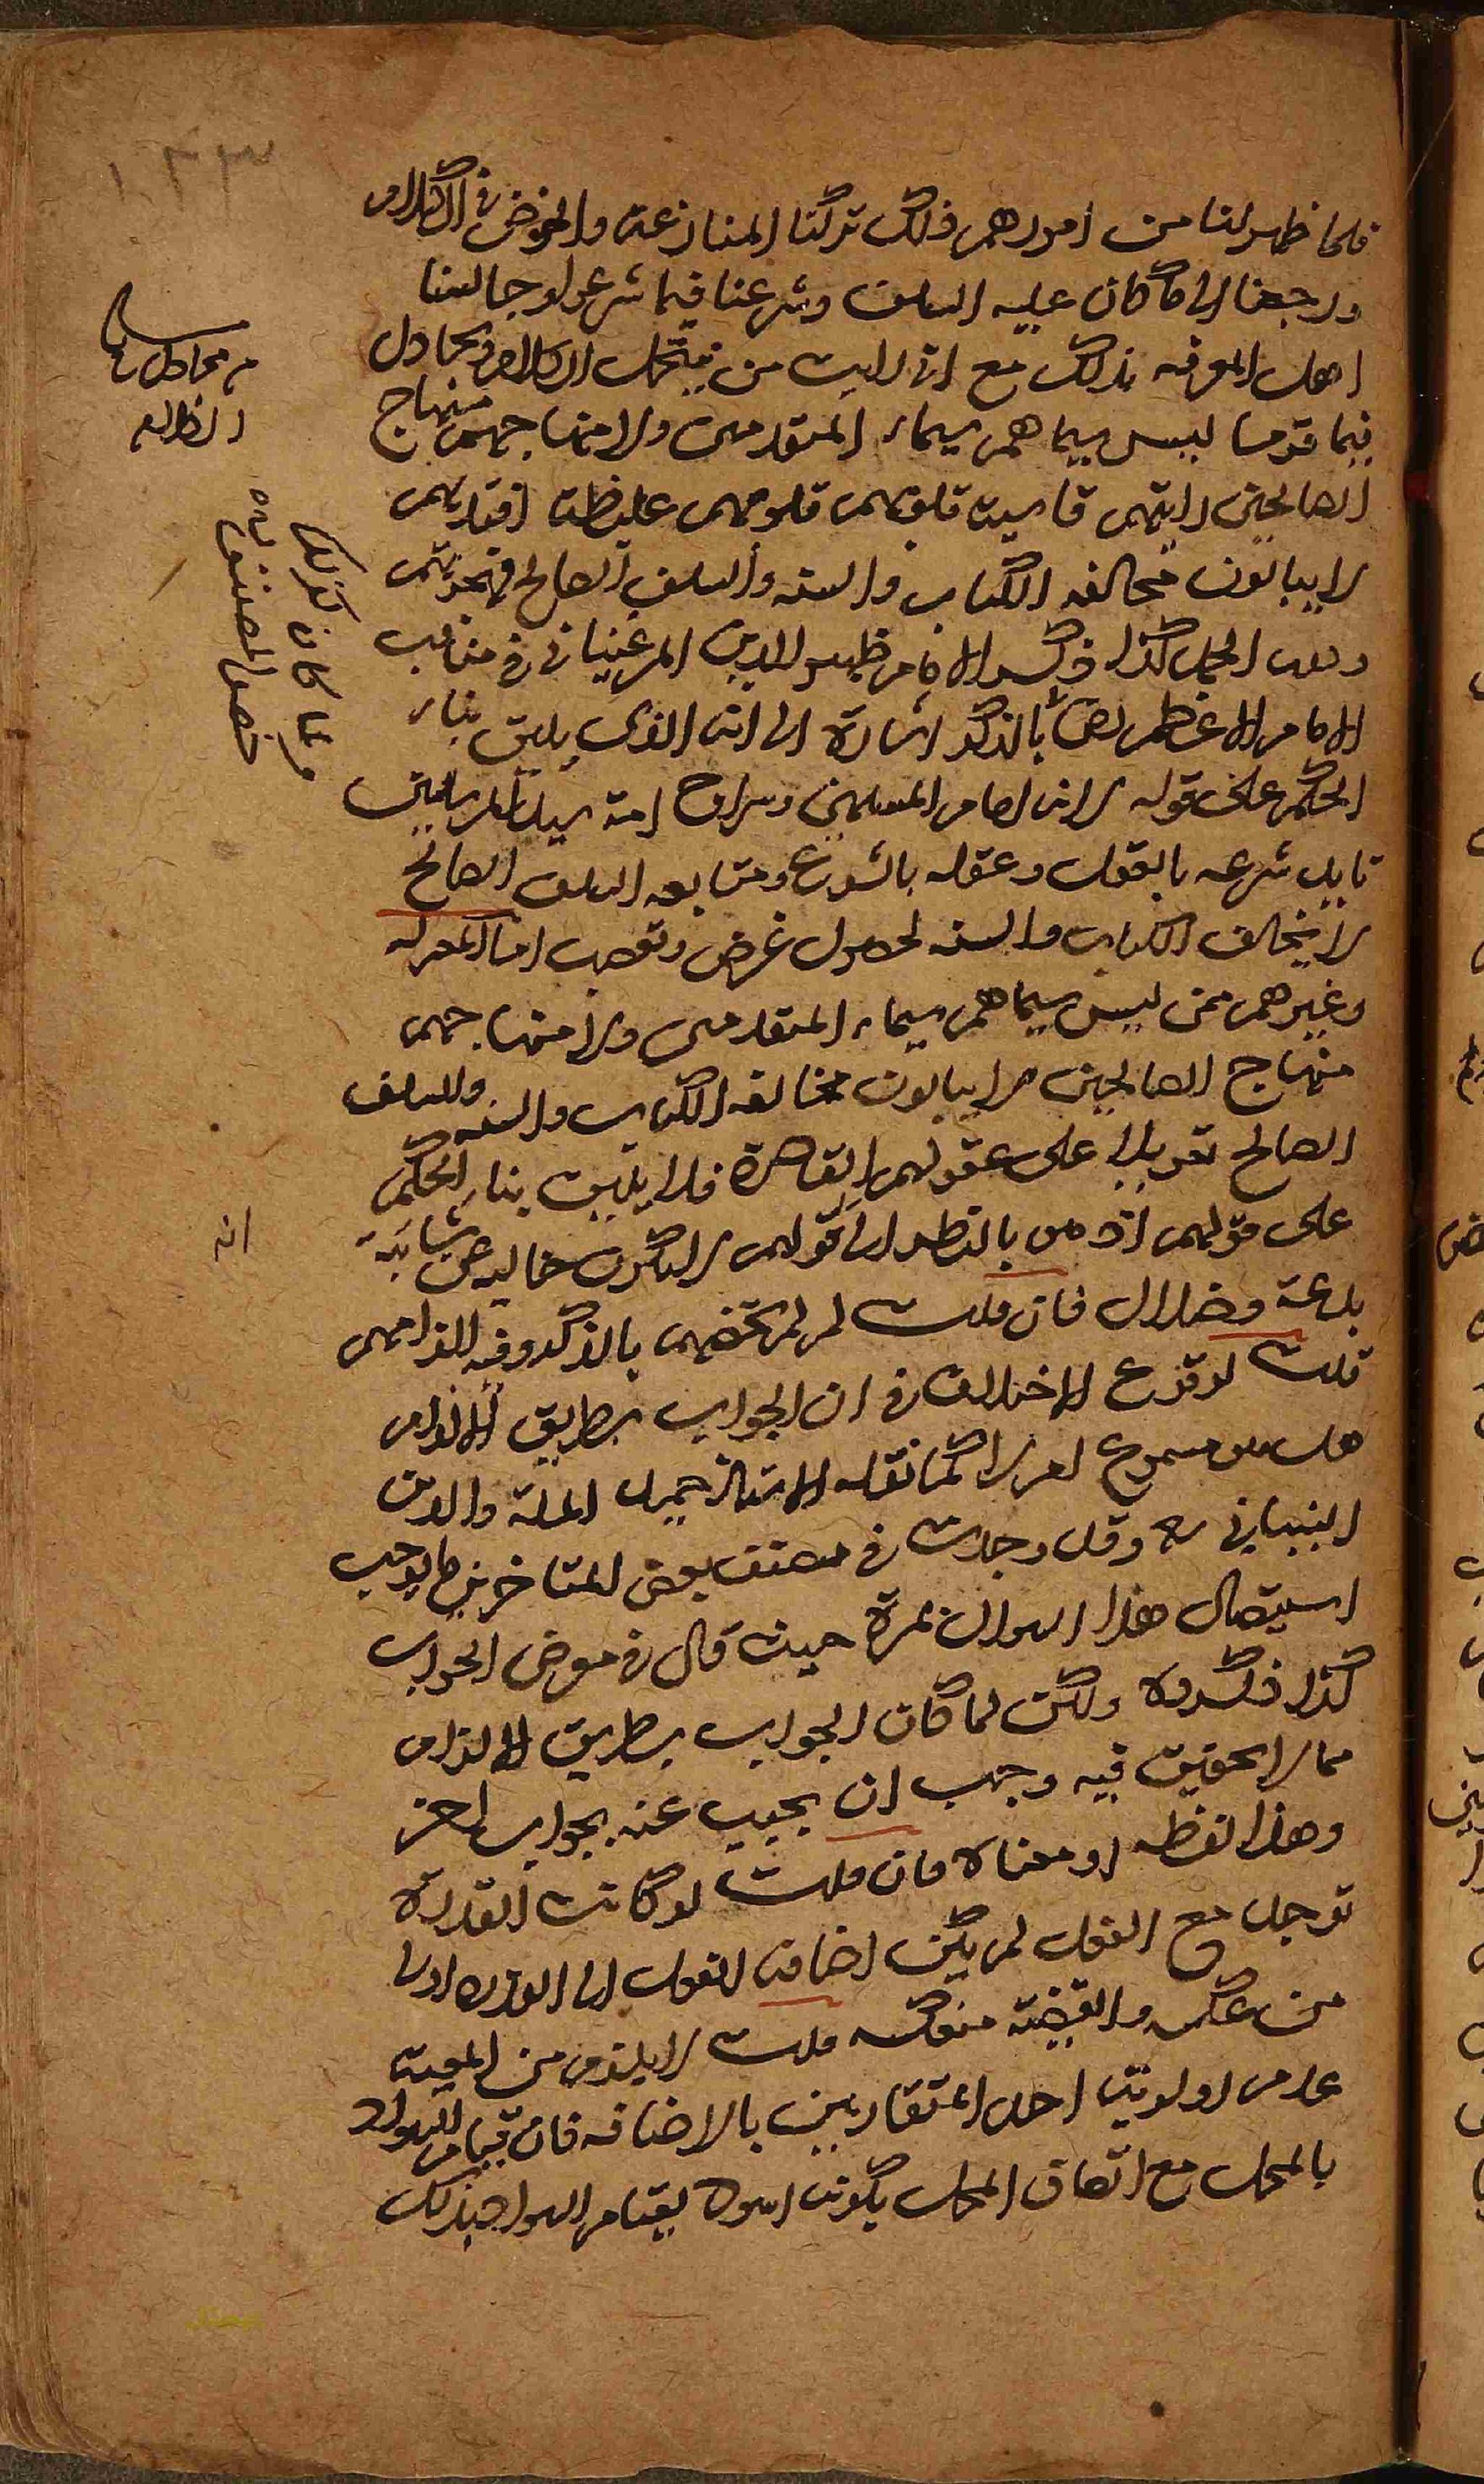 ١٠٣٣
فلما ظهر لنا من امورهم ذلك تركنا المنازعة والخوض في الكلام
ورجعنا الى ما كان عليه السلف وشرعنا فيما شرعوا وجالسنا
اهل المعرفه بذلك مع اني رايت من ينتحل الكلام ويجادل
فيما قوما ليس سيماهم سيماء المتقدمين ولا منهاجهم منهاج
الصالحين رايتهم قاسية قلوبهم غليظة افئدتهم
لا يبالون مخالفه الكتاب والسنه والسلف الصالح فهجرتهم
الجمل كذا ذكره الامام ظهير الدين المرغيناني في مناقب
الامام الاعظم بالذكر اشارة الى ان الذي يليق بناء
الحكم على قوله لانه امام المسلمين وسراج امة سيد المرسلين
تايد شرعه بالعقل وعقله بالشرع ومتابعه السلف الصالح
لا يخالف الكتاب والسنه لحصول غرض وتعصب اما المعتزله
وغيرهم ممن ليس سيماهم سيماء المتقدمين ولا منهاجهم
منهاج الصالحين لا يبالون مخالفه الكتاب والسنه والسلف
الصالح تعويلا على عقولهم القاصرة فلا يليق بناء الحكم
على قولهم اذ من بالنظر الى قولهم لا يكون خاليه عن شائبة
بدعة وضلال فان قلت لم لم تخصهم بالذكر وفيه الزامهم
قلت لوقوع الاختلاف في ان الجواب بطريق الالزام
هل هو مسموع ام لا كما نقله الاستاذ حميد الملة والدين
وقد وجدت في مصنف بعض المتاخرين ما يوجب
استيصال هذا السوال بمرة حيث قال في معرض الجواب
كذا ذكروه ولكن لما كان الجواب بطريق الالزام
مما لا تحقيق فيه وجب ان يجيب عنه بجواب اخر
وهذا لفظه او معناه فان قلت لو كانت القدرة
توجد مع الفعل لم يكن اضافة الفعل الى القدره اولى
من عكسه والقضية منعكسه قلت لا يلزم من المعية
عدم اولوية احد المتقارنين بالاضافه فان قيام السواد
بالمحل مع اتصاف المحل بكونه اسود بقيام السواد بذلك
انه